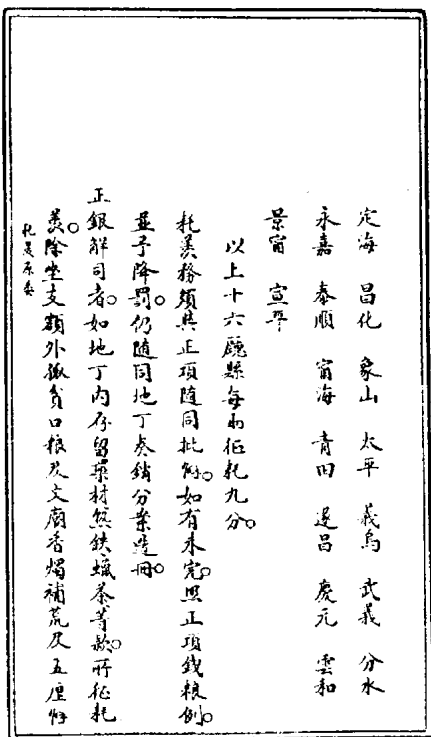 定海 昌化 象山 太平 義烏 武義 分水
永嘉 泰順 甯海 青田 遂昌 慶元 雲和
景甯 宣平
以上十六廳縣每兩征耗九分。
耗羨務須與正項隨同批解。如有未完。照正項錢粮例。
並予降罰。仍隨同地丁奏銷分案造冊。
正銀解司者。如地丁內存留藥材熬鉄蠟茶等款。所征耗
羨。除坐支額外孤貧口粮及文廟香燭補荒及五厘解
耗羨原委